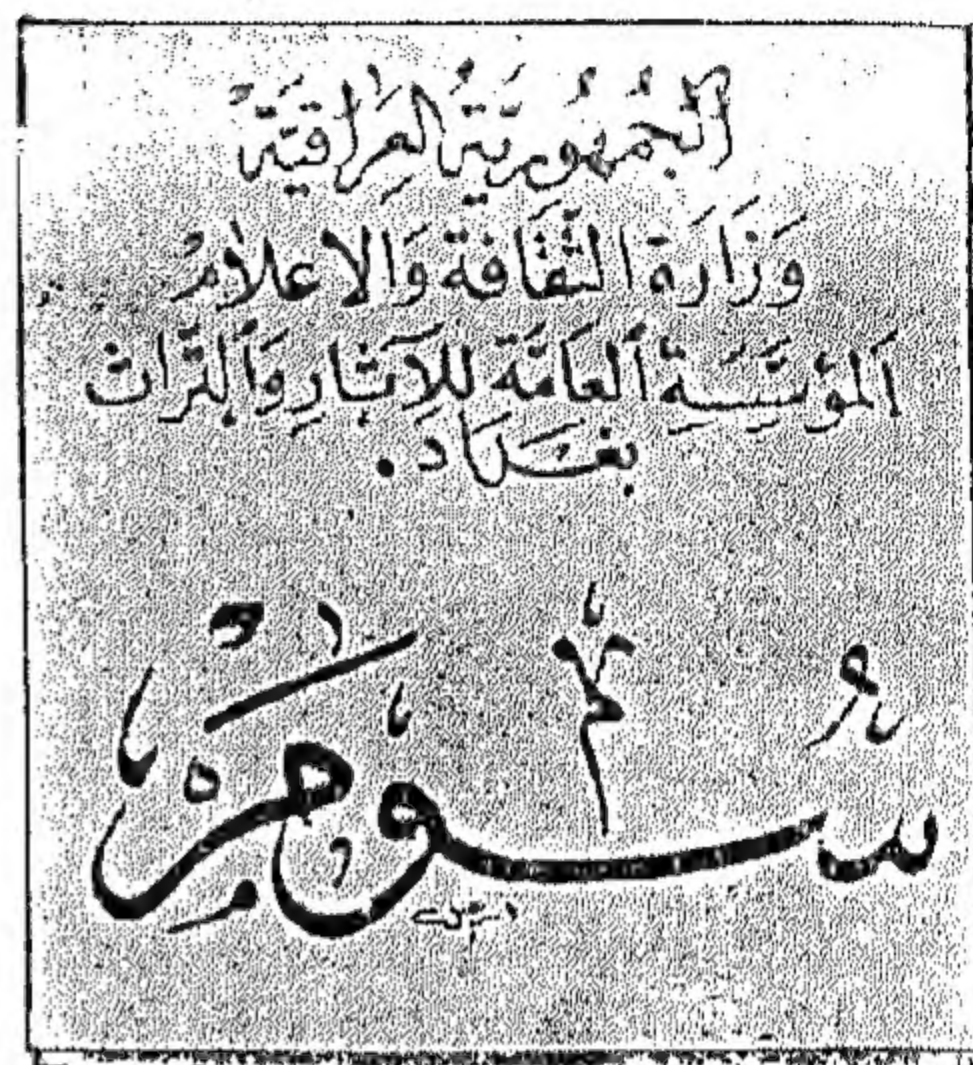 الجُمهُوريَّة العِراقيَّة
وَزَارَة الثَّقَافَة وَالإعلامُ
المؤسَّسَة العَامَّة للآثارِ وَالتراث
بغدَاد .
سُومَر